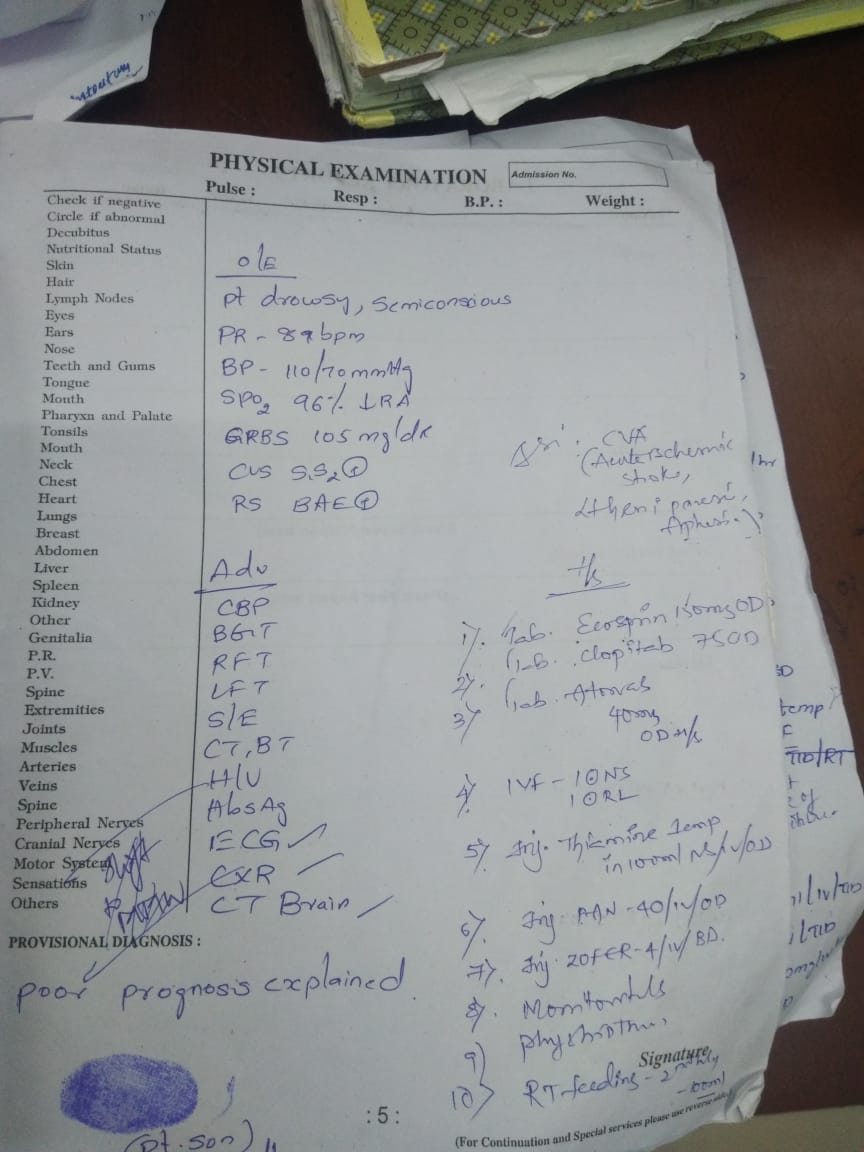 PHYSICAL EXAMINATION
Admission No.
Pulse : Resp : B.P. : Weight :
Check if negative
Circle if abnormal
Decubitus
Nutritional Status
Skin
Hair
Lymph Nodes
Eyes
Ears
Nose
Teeth and Gums
Tongue
Mouth
Pharyxn and Palate
Tonsils
Mouth
Neck
Chest
Heart
Lungs
Breast
Abdomen
Liver
Spleen
Kidney
Other
Genitalia
P.R.
P.V.
Spine
Extremities
Joints
Muscles
Arteries
Veins
Spine
Peripheral Nerves
Cranial Nerves
Motor System
Sensations
Others
O/E
pt drowsy, Semiconsious
PR - 89 bpm
BP - 110/70 mmHg
SPO2 96% ↓RA
GRBS 105 mg/dl
CVS S1S2 ⊕
RS BAE ⊕
CVA
(Acute Ischemic
stroke,
Adv
CBP
BGT
RFT
LFT
S/E
CT, BT
HIV
HbsAg
ECG
CXR
CT Brain
1). Tab. Ecosprin 150mg OD
Tab. Clopitab 75 OD
2). Tab. Atorvas
3) 40mg
OD H/s
4) IVF - 1 O NS
1 O RL
5) Inj. Thiamine 1amp
in 100ml NS/IV/OD
6). Inj PAN - 40/IV/OD
7). Inj. ZOFER - 4/IV/BD.
8). Monitor
9)
10) RT feeding - 2
- 100ml
PROVISIONAL DIAGNOSIS :
poor prognosis explained.
Signature
: 5 :
(pt. son)
(For Continuation and Special services please use reverse side)